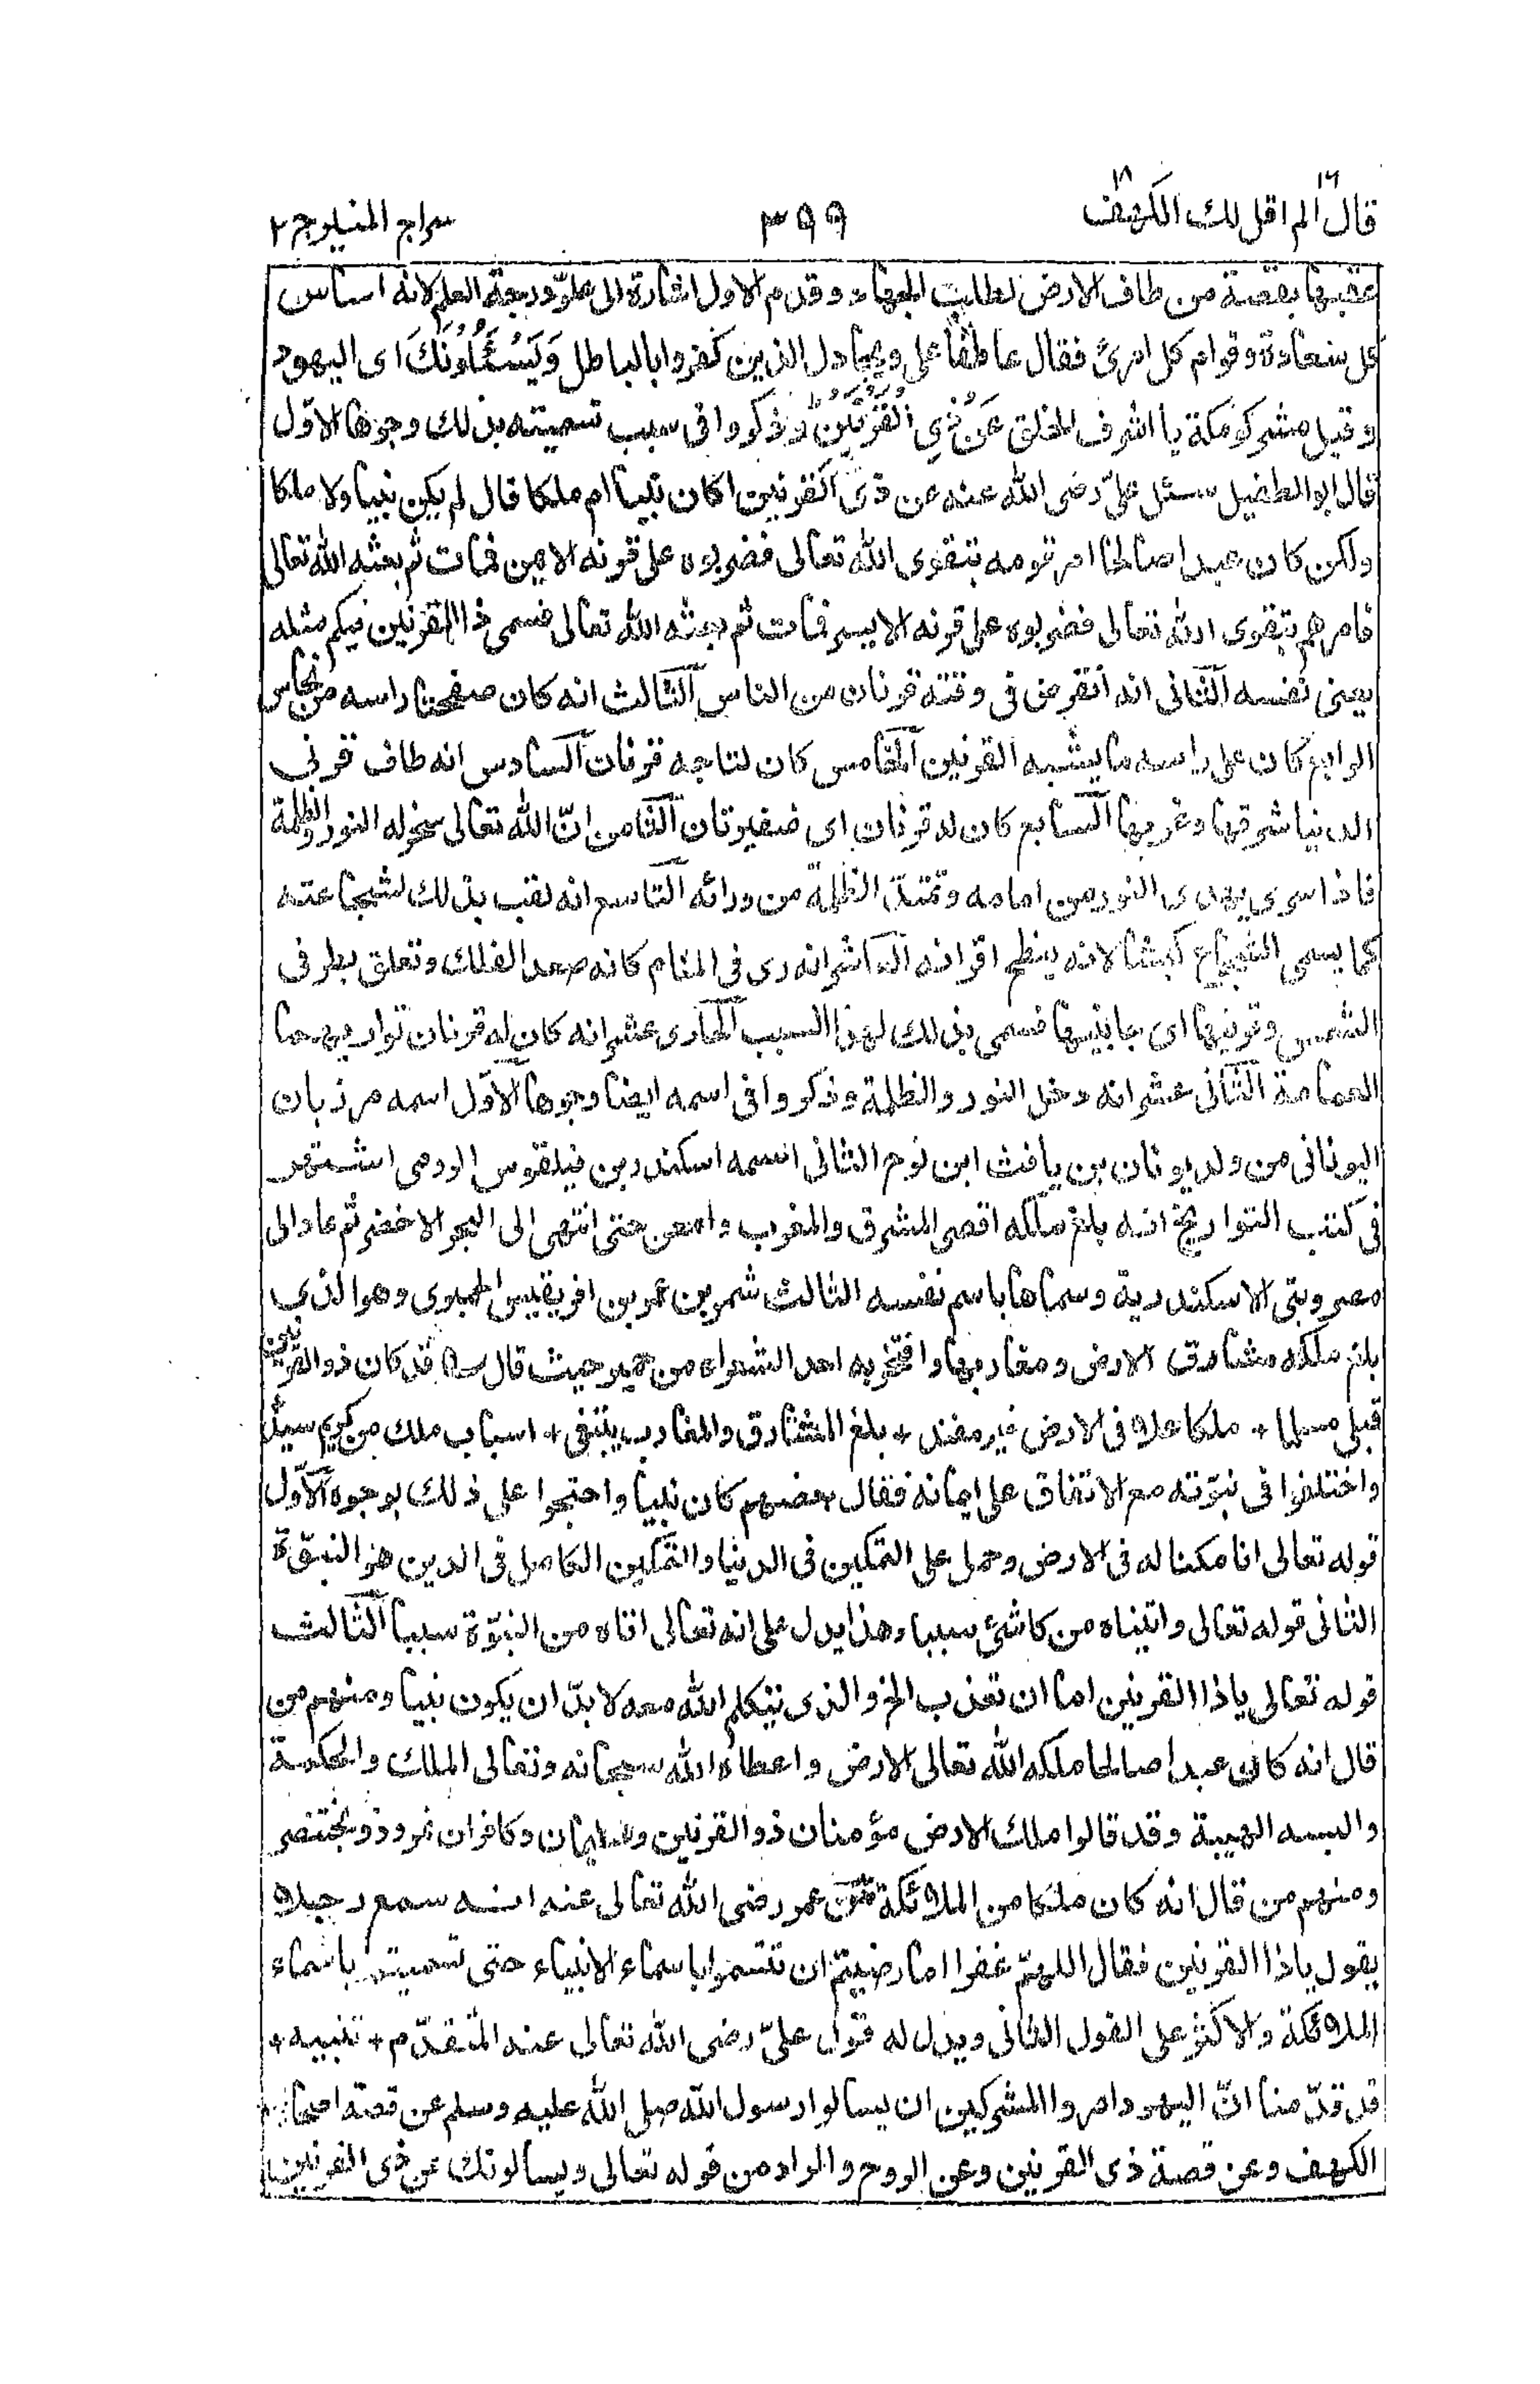 قال الم ١٦ اقل لك الكهف ١٨
٣٩٩
سراج المنير ج ٢
عقبها بقصة من طاف الارض لطلب الجهاد وقدم الاول اشارة الى علوّ درجة العلم لانه اساس
كل سعادة وقوام كل امرئ فقال عاطفا على ويجادل الذين كفروا بالباطل وَيَسْـَٔلُونَكَ اى اليهود
وقيل مشركو مكة يا اشرف الخلق عَنْ ذِي الْقَرْنَيْنِ وذكروا فى سبب تسميته بذلك وجوها الاوّل
قال ابو الطفيل سئل علىّ رضى الله عنه عن ذى القرنين اكان نبيا ام ملكا قال لم يكن نبيا ولا ملكا
ولكن كان عبدا صالحا امر قومه بتقوى الله تعالى فضربوه على قرنه الايمن فمات ثم بعثه الله تعالى
فامرهم بتقوى الله تعالى فضربوه على قرنه الايسر فمات ثم بعثه الله تعالى فسمى ذا القرنين فيكم مثله
يعنى نفسه الثانى انه انقرض فى وقته قرنان من الناس الثالث انه كان صفحتا راسه من نحاس
الرابع كان على راسه ما يشبه القرنين الخامس كان لتاجه قرنان السادس انه طاف قرنى
الدنيا شرقها وغربها السابع كان له قرنان اى ضفيرتان الثامن انّ الله تعالى سخر له النور والظلمة
فاذا سرى يهدى النور من امامه وتمتدّ الظلمة من ورائه التاسع انه لقب بذلك لشجاعته
كما يسمى الشجاع كبشا لانه ينطح اقرانه العاشر انه رى فى المنام كانه صعد الفلك وتعلق بطرفى
الشمس وقرنيها اى جانبيها فسمى بذلك لهذا السبب الحادى عشر انه كان له قرنان تواريهما
العمامة الثانى عشر انه دخل النور والظلمة وذكروا فى اسمه ايضا وجوها الاوّل اسمه مرزبان
اليونانى من ولد يونان بن يافث ابن نوح الثانى اسمه اسكندر بن فيلقوس الرومى اشتهر
فى كتب التواريخ انه بلغ ملكه اقصى المشرق والمغرب وامعن حتى انتهى الى البحر الاخضر ثم عاد الى
مصر وبنى الاسكندرية وسماها باسم نفسه الثالث شمر بن عمر بن افريقيس الحميرى وهو الذى
بلغ ملكه مشارق الارض ومغاربها وافتخر به احد الشعراء من حمير حيث قال قد كان ذو القرنين
قبلى مسلما + ملكا علا فى الارض غير مفند + بلغ المشارق والمغارب يبتغى + اسباب ملك من كريم سيد
واختلفوا فى نبوّته مع الاتفاق على ايمانه فقال بعضهم كان نبيا واحتجوا على ذلك بوجوه الاوّل
قوله تعالى انا مكنا له فى الارض وحمل على التمكين فى الدنيا والتمكين الكامل فى الدين هو النبوّة
الثانى قوله تعالى واتيناه من كل شئ سببا وهذا يدل على انه تعالى اتاه من النبوّة سببا الثالث
قوله تعالى ياذا القرنين اما ان تعذب الخ والذى يتكلم الله معه لا بدّ ان يكون نبيا ومنهم من
قال انه كان عبدا صالحا ملكه الله تعالى الارض واعطاه الله سبحانه وتعالى الملك والحكمة
والبسه الهيبة وقد قالوا ملك الارض مؤمنان ذو القرنين وسليمان وكافران نمروذ وبختنصر
ومنهم من قال انه كان ملكا من الملائكة عن عمر رضى الله تعالى عنه انه سمع رجلا
يقول ياذا القرنين فقال اللهمّ غفرا اما رضيتم ان تتسموا باسماء الانبياء حتى تسميتم باسماء
الملائكة والاكثر على القول الثانى ويدل له قول علىّ رضى الله تعالى عنه المتقدّم + تنبيه +
قد قدّمنا انّ اليهود امروا المشركين ان يسالوا رسول الله صلى الله عليه وسلم عن قصة اصحاب
الكهف وعن قصة ذى القرنين وعن الروح والمراد من قوله تعالى ويسالونك عن ذى القرنين